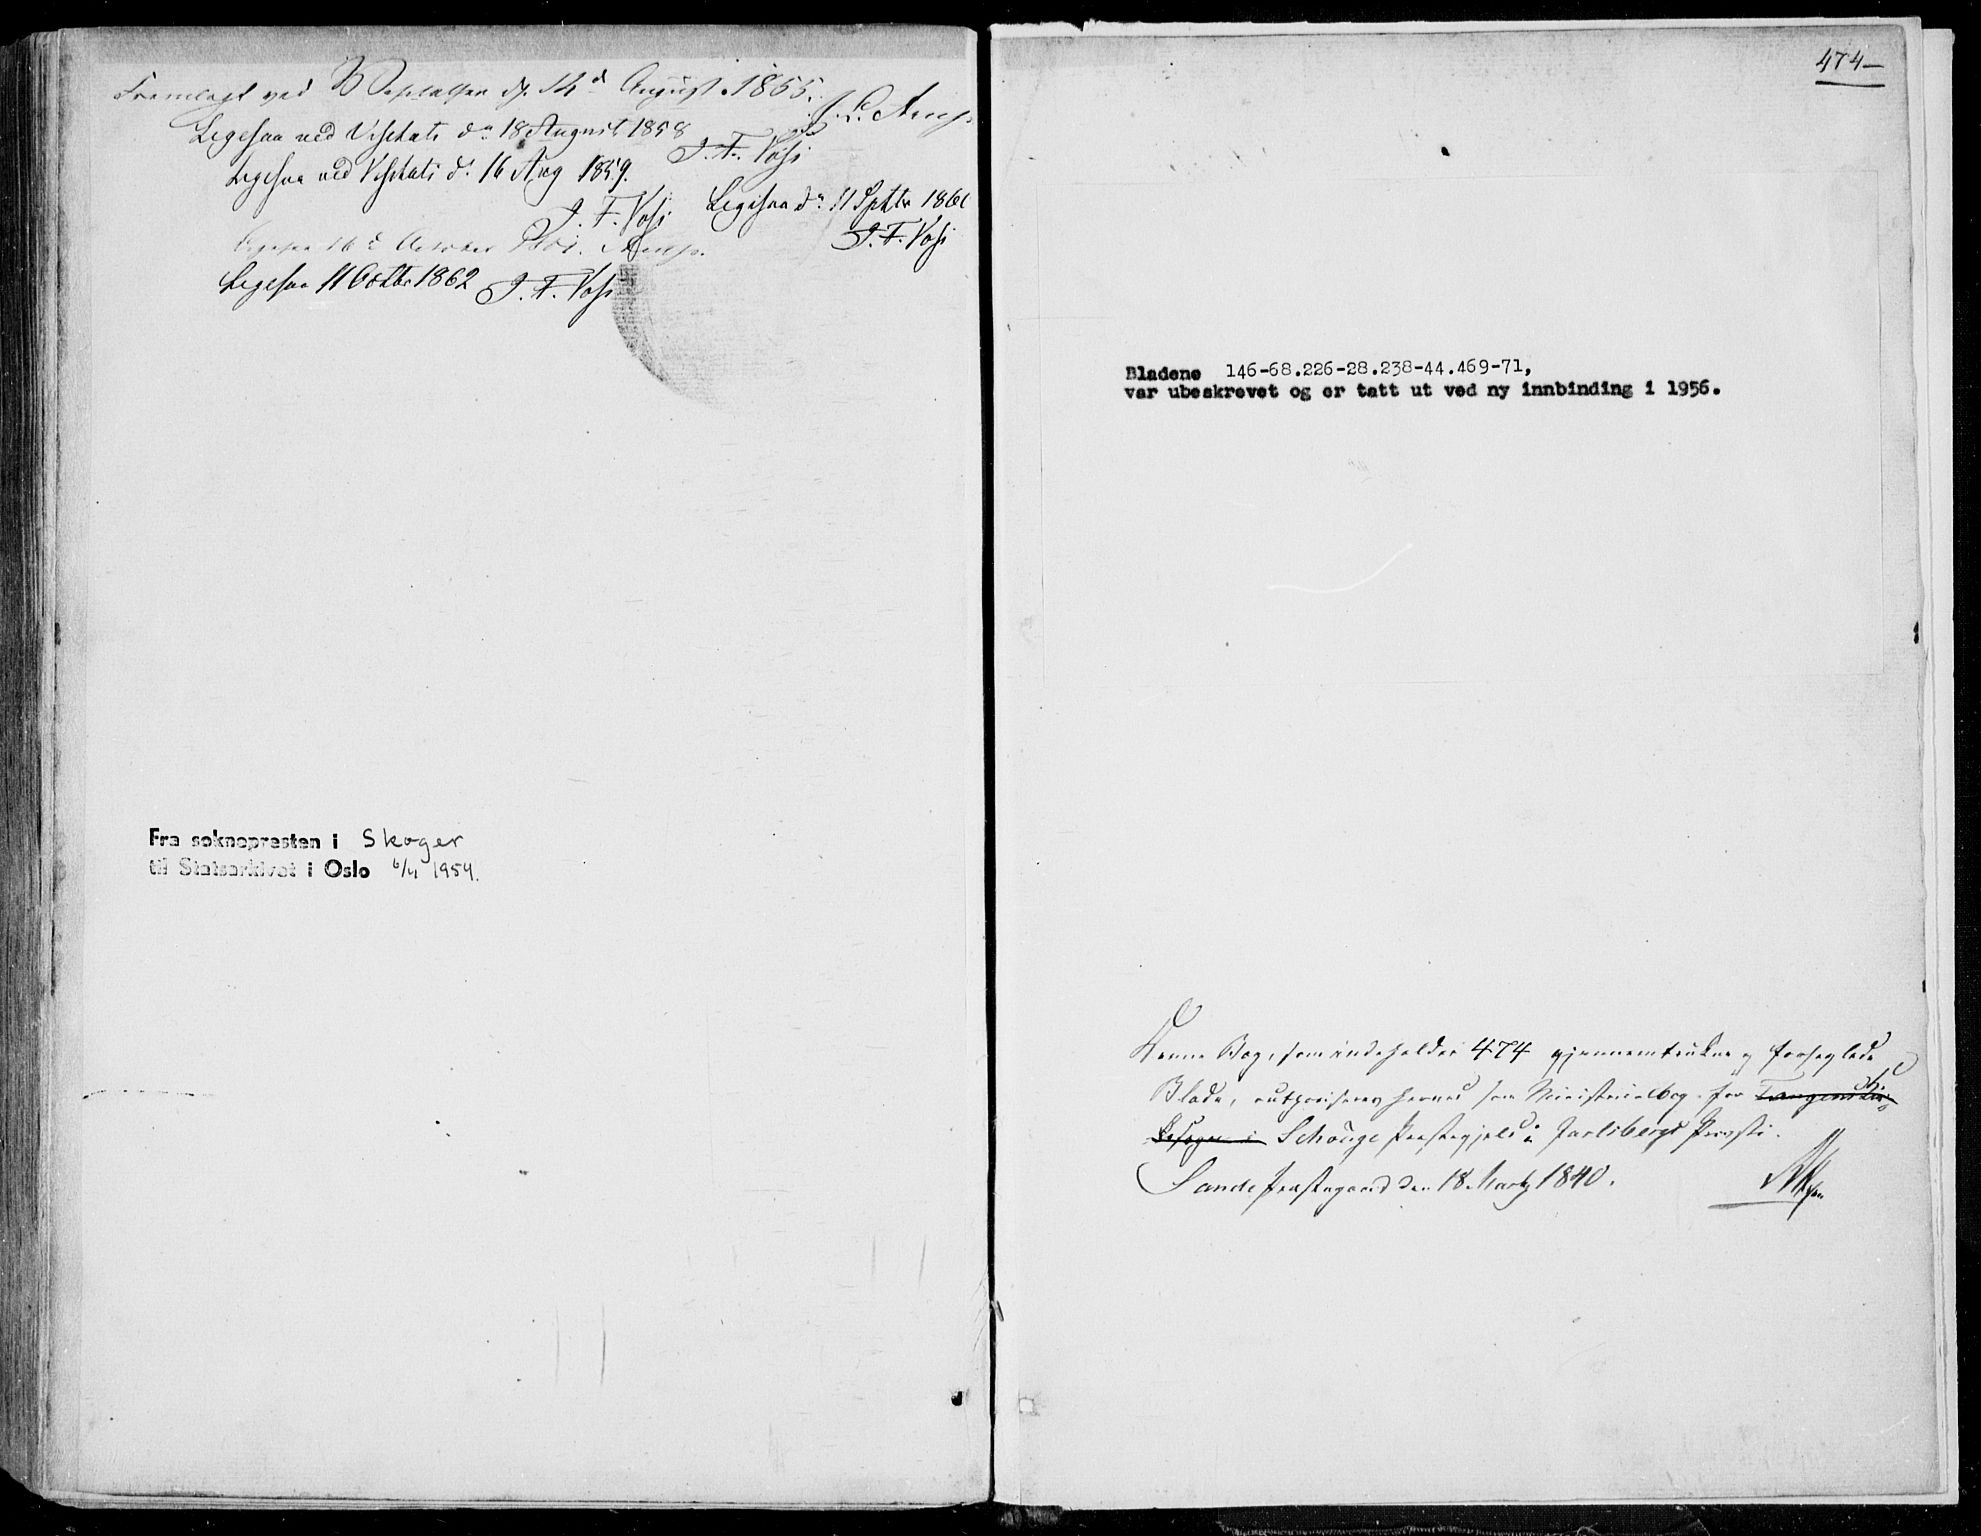 Fremlagt ved Visitatsen d. 14 August 1855.
Ligesaa ved Visitats dn 18 August 1858
J. F. Voss
Ligesaa ved Visitats d. 16 Aug 1859.
J. F. Voss
Ligesaa dn 11 Septbr
J. F. Voss
16 October
Ligesaa 11 Octbr 1862 J. F. Voss
Fra soknepresten i Skoger
til Statsarkivet i Oslo 1954.
474
Bladene 146-68.226-28.238-44.469-71,
var ubeskrevet og er tatt ut ved ny innbinding i 1956.
Denne Bog, som indeholder 474 gjennemtrukne og forseglede
Blade, authoriseres herved som Ministerialbog for Tangens
Schouge Præstegjeld i Jarlsbergs Provsti.
Sande Præstegaard den 18 Martz 1840.